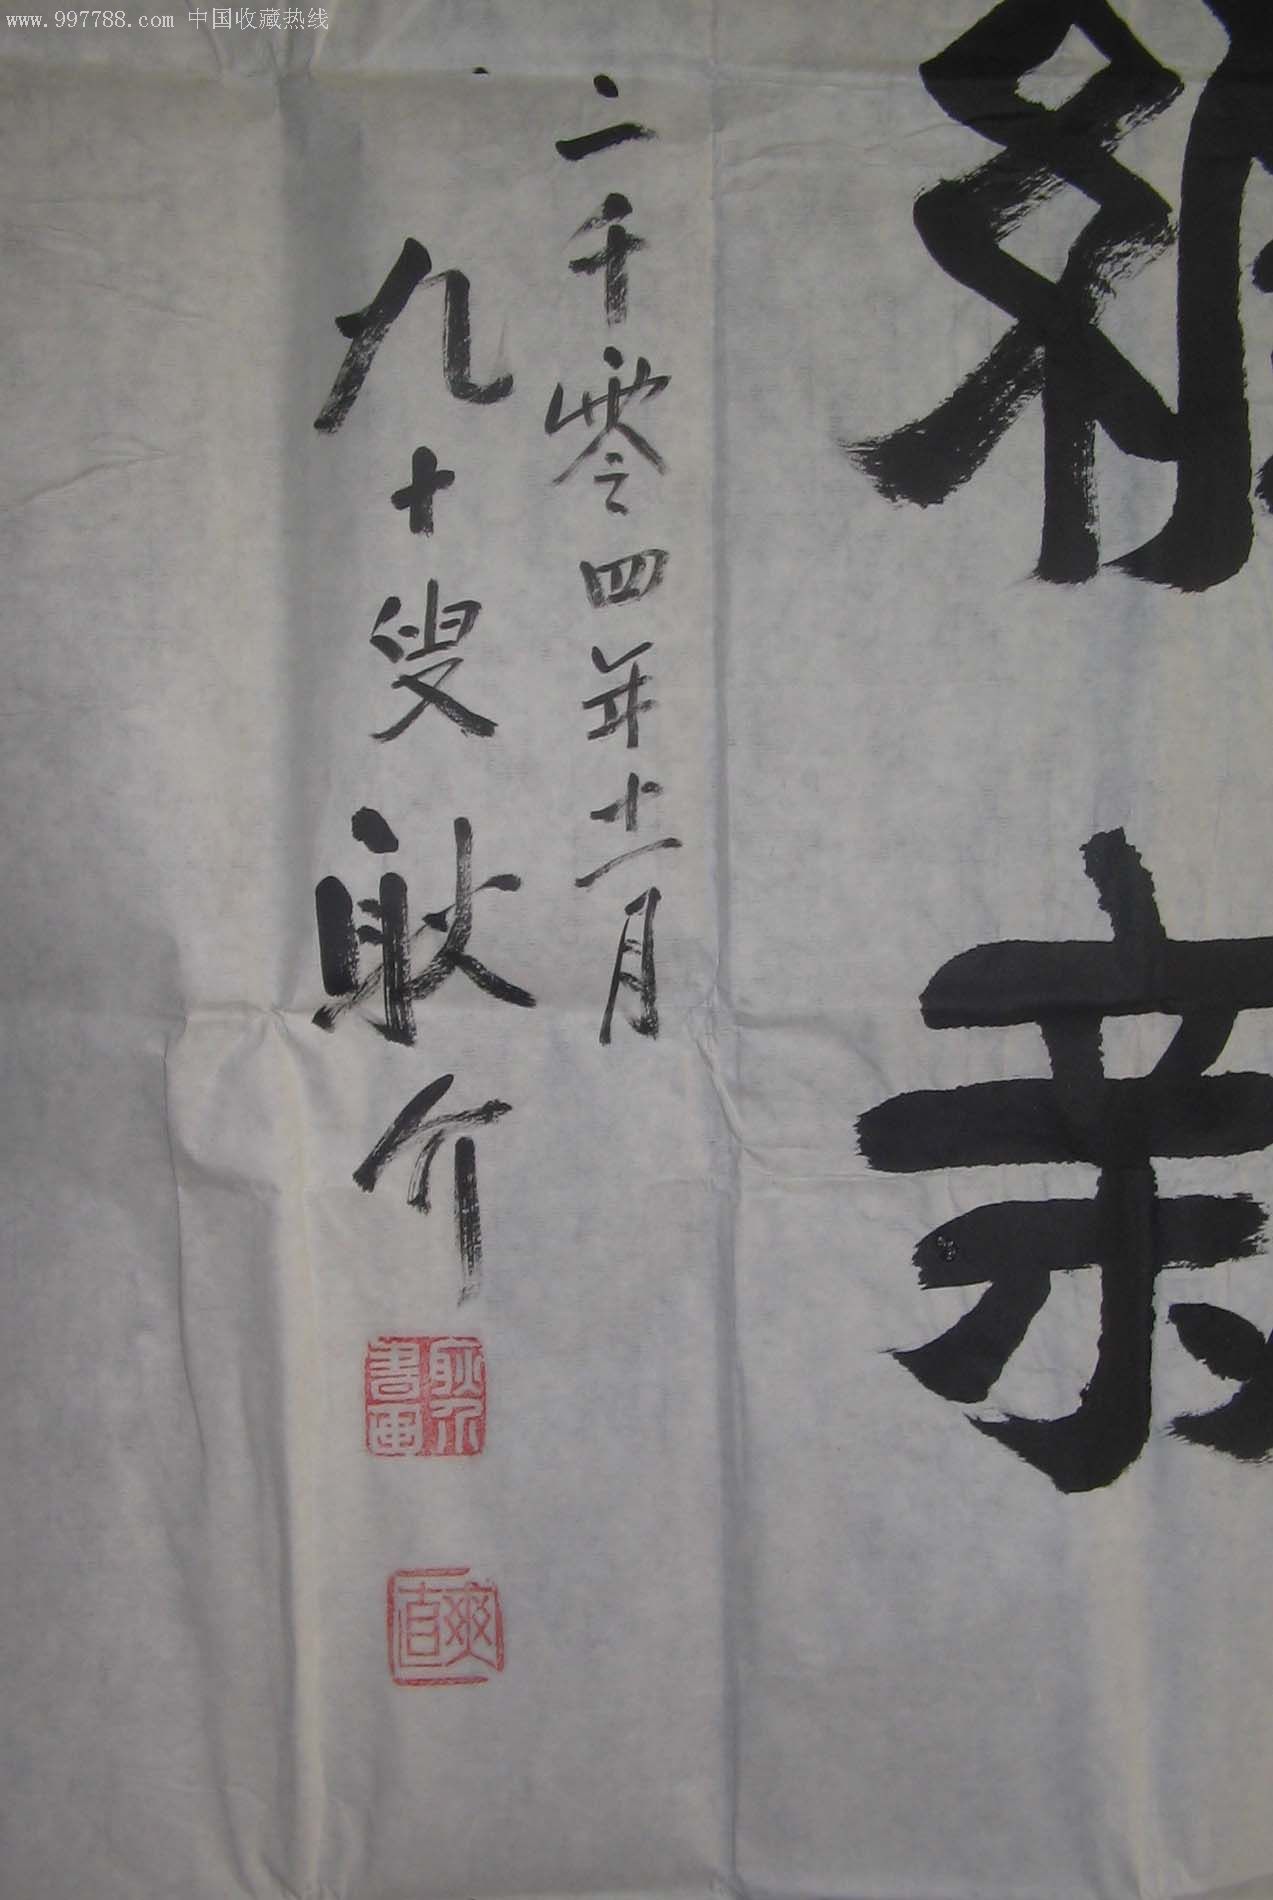 www.997788.com 中国收藏热线
二千零四年十二月
九十叟耿介
耿介書画
爽直